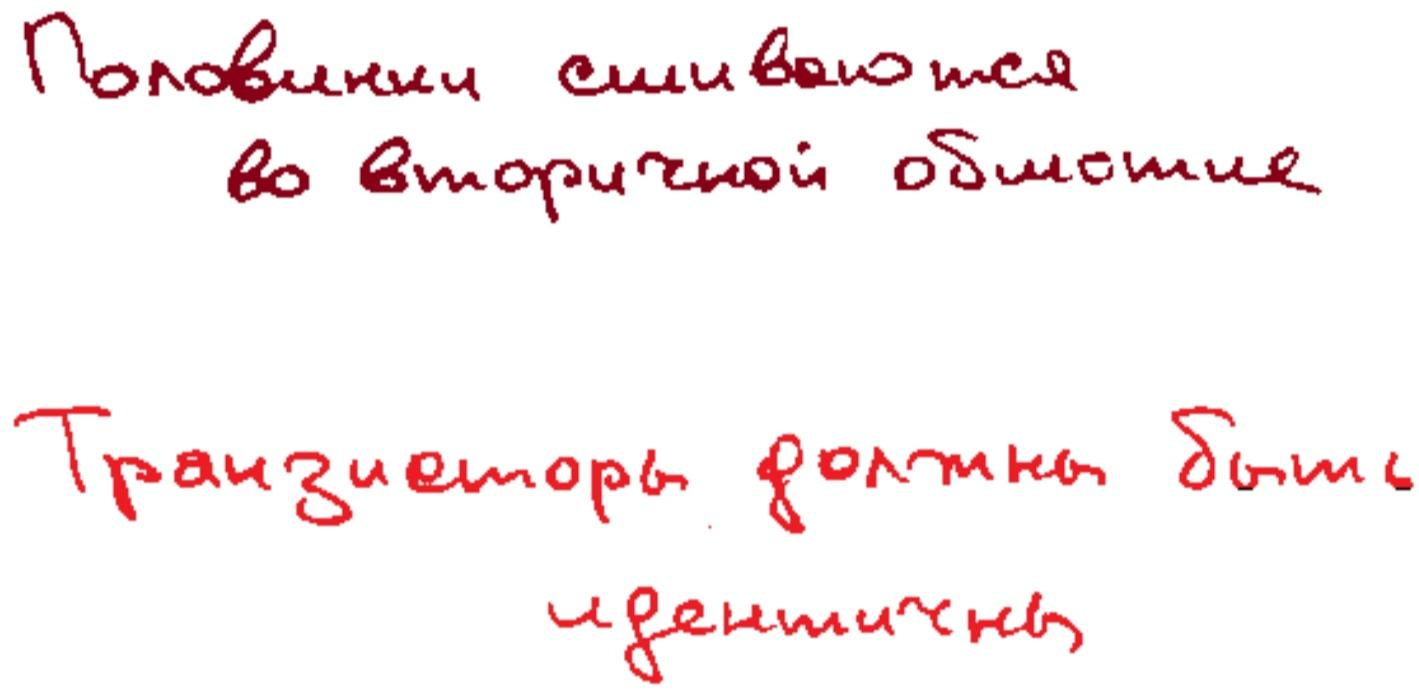 Половинки сшиваются
во вторичной обмотке
Транзисторы должны быть
идентичны